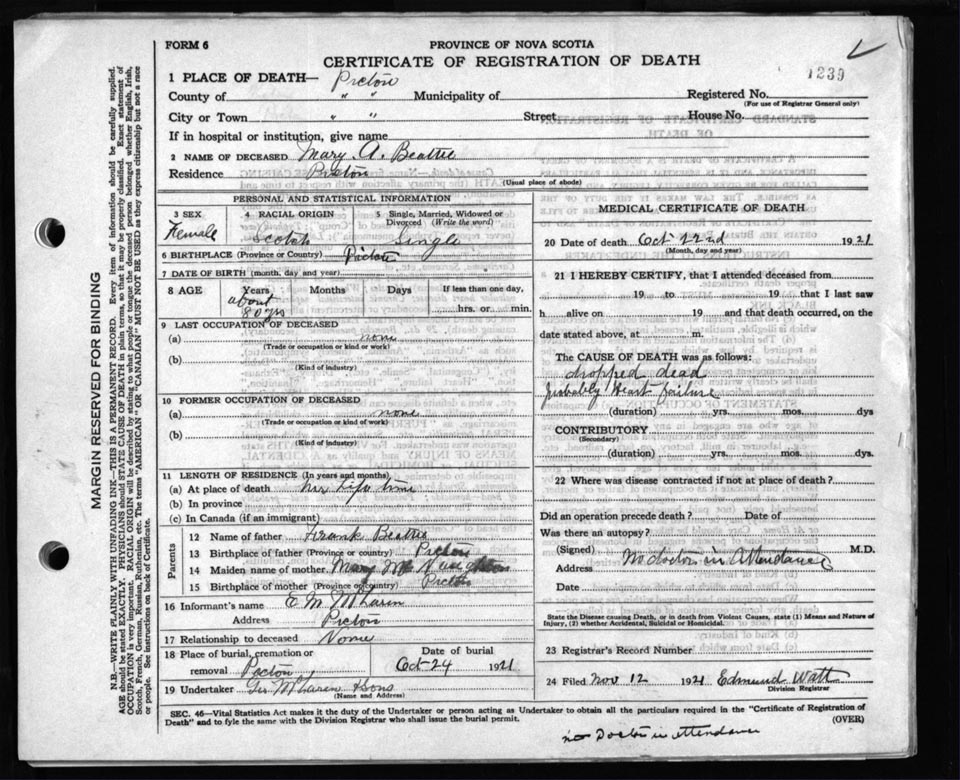 FORM 6
PROVINCE OF NOVA SCOTIA
CERTIFICATE OF REGISTRATION OF DEATH
1239
1 PLACE OF DEATH— Pictou
County of " " Municipality of Registered No.
(For use of Registrar General only)
City or Town " " Street House No.
If in hospital or institution, give name
2 NAME OF DECEASED Mary A. Beattie
Residence Pictou
(Usual place of abode)
PERSONAL AND STATISTICAL INFORMATION
3 SEX Female
4 RACIAL ORIGIN Scotch
5 Single, Married, Widowed or Divorced (Write the word) Single
6 BIRTHPLACE (Province or Country) Pictou
7 DATE OF BIRTH (month, day and year)
8 AGE Years Months Days If less than one day,
about 80 yrs hrs. or min.
9 LAST OCCUPATION OF DECEASED
(a) none
(Trade or occupation or kind of work)
(b)
(Kind of industry)
10 FORMER OCCUPATION OF DECEASED
(a) none
(Trade or occupation or kind of work)
(b)
(Kind of industry)
11 LENGTH OF RESIDENCE (In years and months)
(a) At place of death her Life time
(b) In province
(c) In Canada (if an immigrant)
Parents
12 Name of father Frank Beattie
13 Birthplace of father (Province or country) Pictou
14 Maiden name of mother Mary McNaughton
15 Birthplace of mother (Province or country) Pictou
16 Informant's name E. M. McLaren
Address Pictou
17 Relationship to deceased None
18 Place of burial, cremation or removal Pictou
Date of burial Oct 24 1921
19 Undertaker Geo McLaren & Sons
(Name and Address)
MEDICAL CERTIFICATE OF DEATH
20 Date of death Oct 22nd 1921
(Month, day and year)
21 I HEREBY CERTIFY, that I attended deceased from
19 to 19 that I last saw
h alive on 19 and that death occurred, on the
date stated above, at m.
The CAUSE OF DEATH was as follows:
dropped dead
Probably Heart failure
(duration) yrs. mos. dys
CONTRIBUTORY
(Secondary)
(duration) yrs. mos. dys.
22 Where was disease contracted if not at place of death?
Did an operation precede death? Date of
Was there an autopsy?
(Signed) M.D.
No doctors in Attendance
Address
Date
State the Disease causing Death, or in death from Violent Causes, state (1) Means and Nature of
Injury, (2) whether Accidental, Suicidal or Homicidal.
23 Registrar's Record Number
24 Filed Nov 12 1921 Edmund Watt
Division Registrar
SEC. 46—Vital Statistics Act makes it the duty of the Undertaker or person acting as Undertaker to obtain all the particulars required in the "Certificate of Registration of
Death" and to fyle the same with the Division Registrar who shall issue the burial permit. (OVER)
no Doctor in attendance
MARGIN RESERVED FOR BINDING
N.B.—WRITE PLAINLY WITH UNFADING INK—THIS IS A PERMANENT RECORD. Every item of information should be carefully supplied.
AGE should be stated EXACTLY. PHYSICIANS should STATE CAUSE OF DEATH in plain terms, so that it may be properly classified. Exact statement of
OCCUPATION is very important. RACIAL ORIGIN will be described by stating to what people or tongue the deceased person belonged whether English, Irish,
Scotch, French, German, Russian, Ruthenian, etc. The terms "AMERICAN" OR "CANADIAN" MUST NOT BE USED as they express citizenship but not a race
or people. See instructions on back of Certificate.